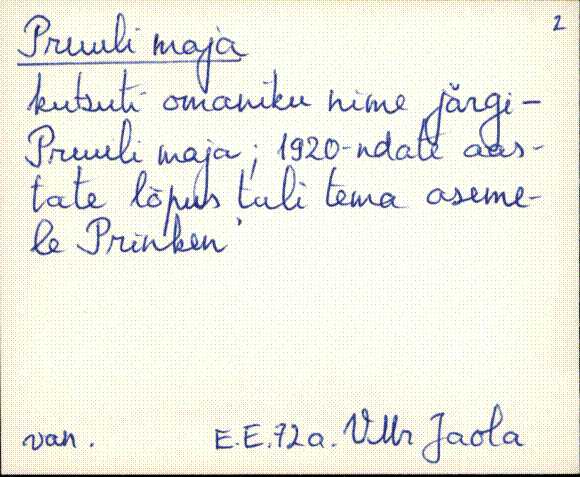 2
Pruuli maja
kutsuti omaniku nime järgi-
Pruuli maja; 1920-ndate aas-
tate lõpus tuli tema aseme-
le Prinken
van. E.E. 72a. VMr Jaola